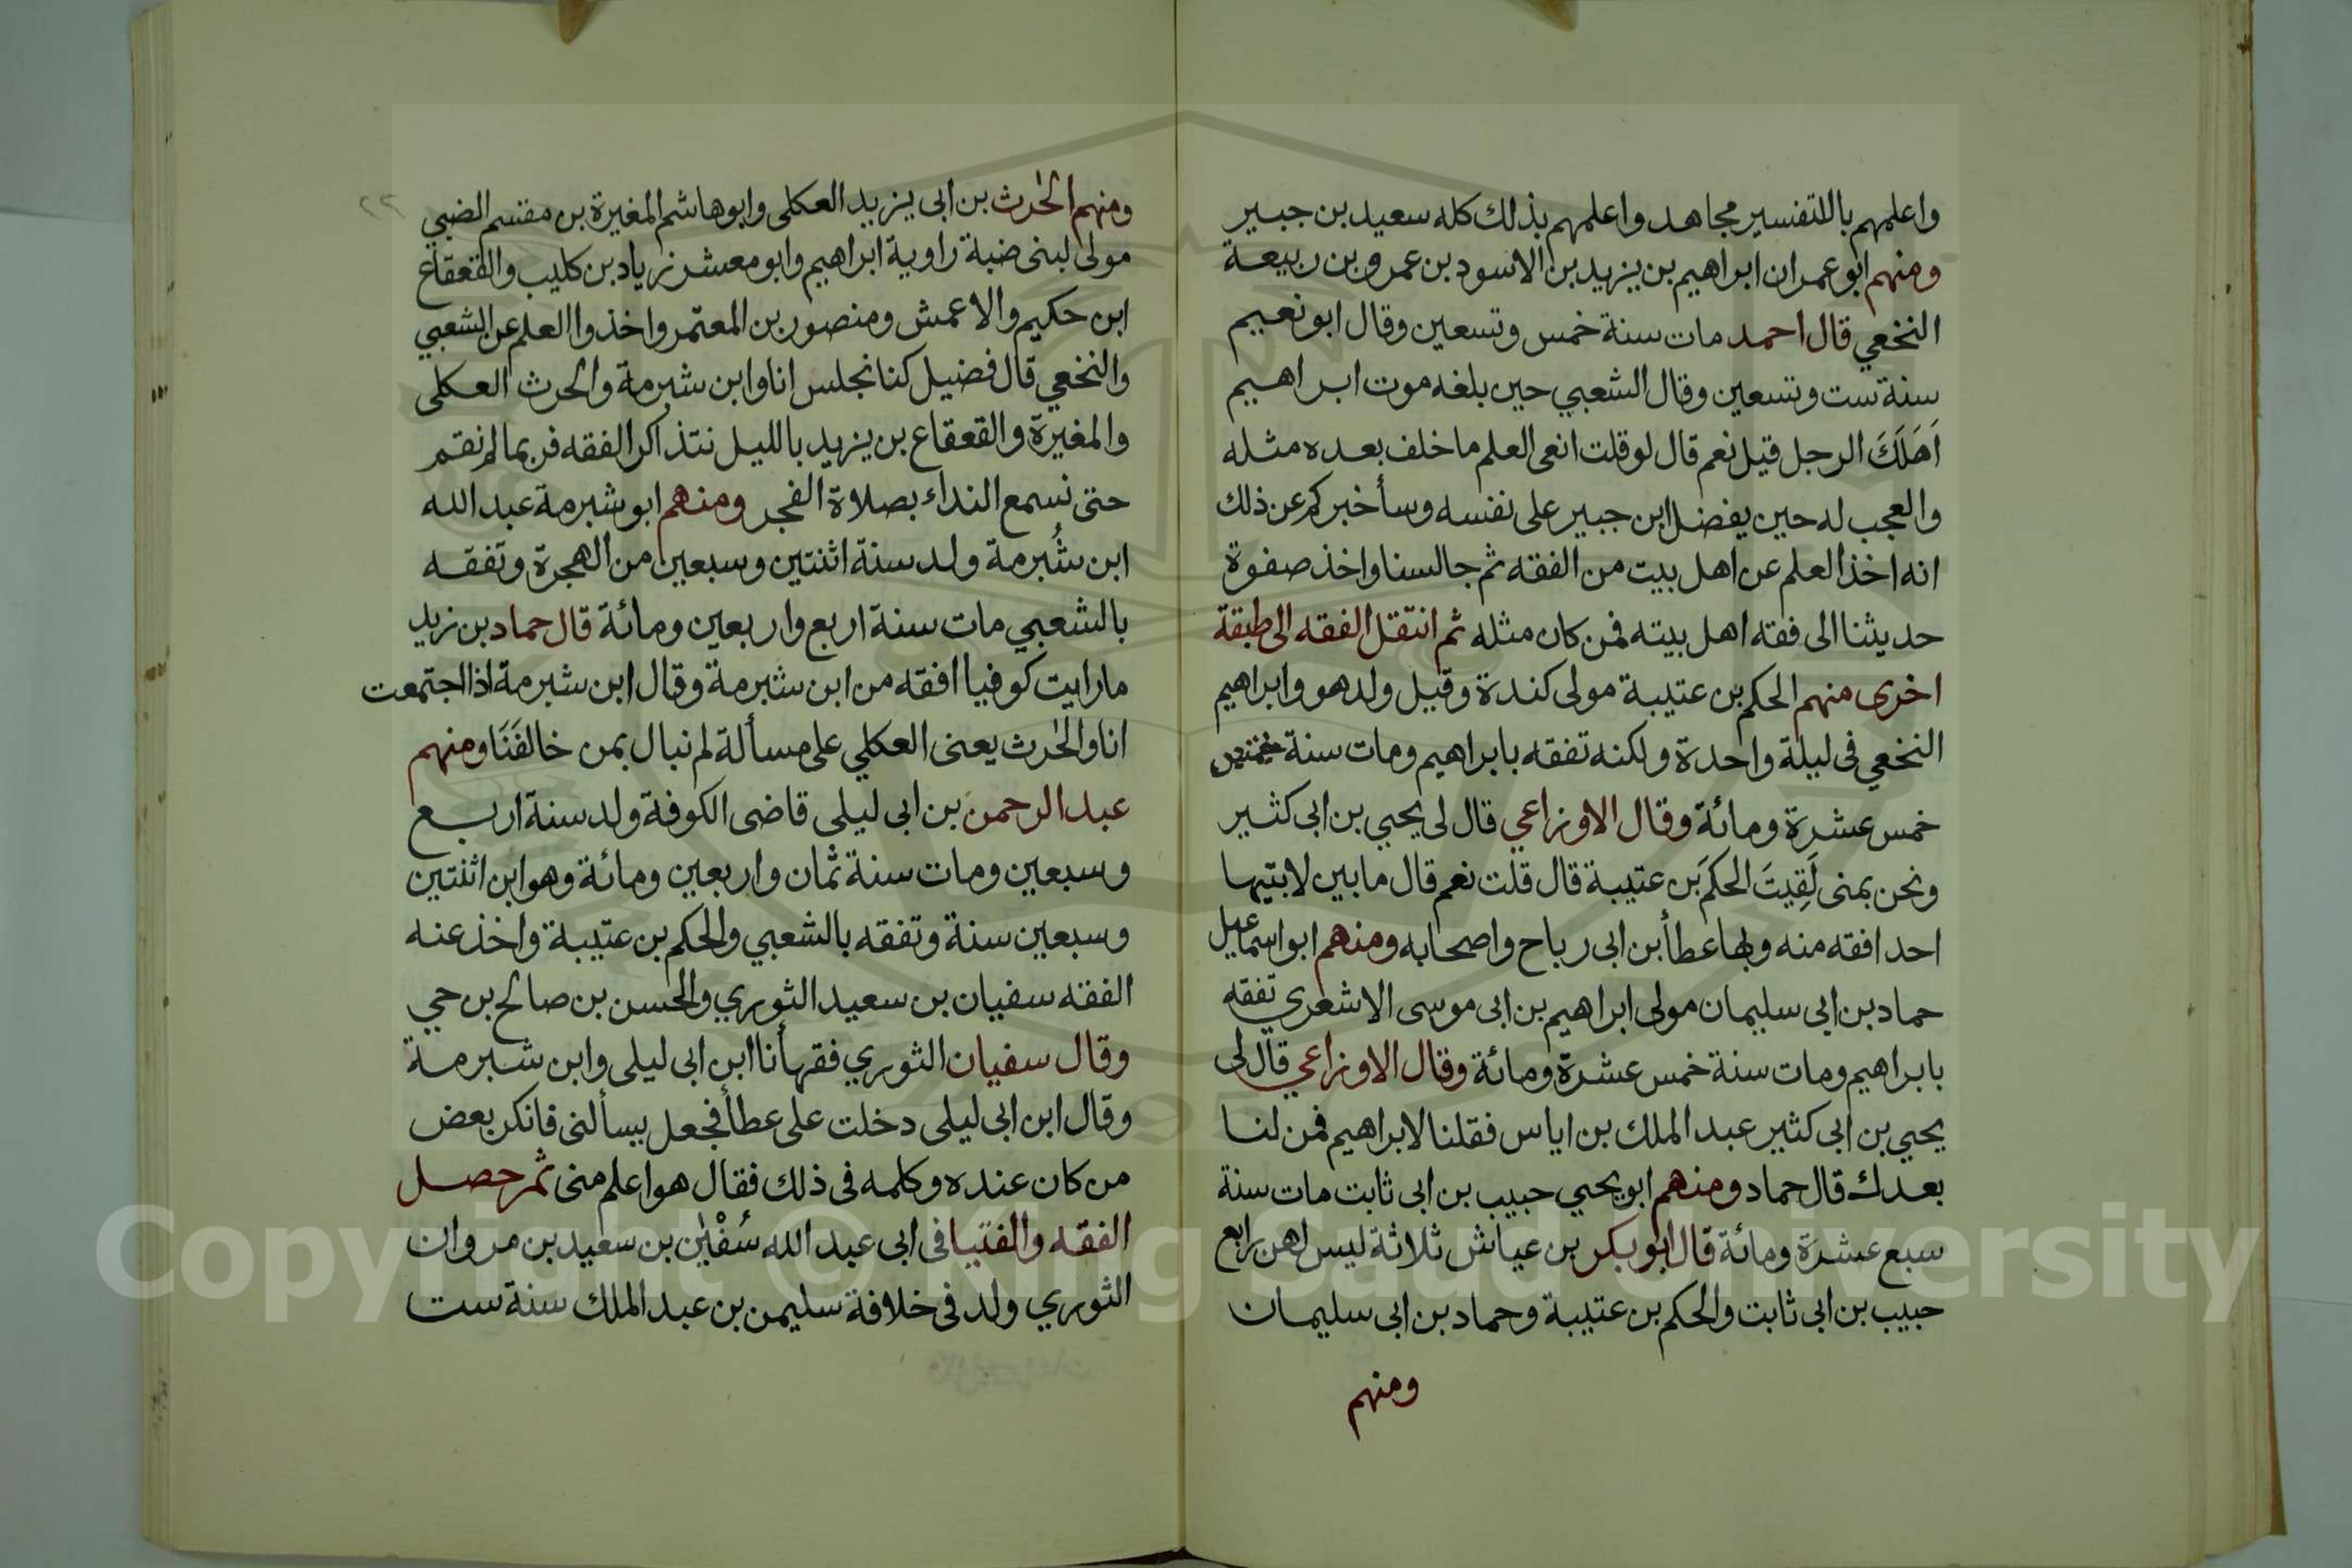 واعلمهم باللتفسير مجاهد واعلمهم بذلك كله سعيد بن جبير
ومنهم ابو عمران ابراهيم بن يزيد بن الاسود بن عمرو بن ربيعة
النخعي قال احمد مات سنة خمس وتسعين وقال ابو نعيم
سنة ست وتسعين وقال الشعبي حين بلغه موت ابراهيم
اَهَلَكَ الرجل قيل نعم قال لو قلت انعى العلم ما خلف بعده مثله
والعجب له حين يفضل ابن جبير على نفسه وسأخبركم عن ذلك
انه اخذ العلم عن اهل بيت من الفقه ثم جالسنا واخذ صفوة
حديثنا الى فقه اهل بيته فمن كان مثله ثم انتقل الفقه الى طبقة
اخرى منهم الحكم بن عتيبة مولى كندة وقيل ولد هو وابراهيم
النخعي فى ليلة واحدة ولكنه تفقه بابراهيم ومات سنة
خمس عشرة ومائة وقال الاوزاعي قال لى يحيي بن ابى كثير
ونحن بمنى لَقِيتَ الحكمَ بن عتيبة قال قلت نعم قال ما بين لابتيها
احد افقه منه وبها عطأ بن ابى رباح واصحابه ومنهم ابو اسماعيل
حماد بن ابى سليمان مولى ابراهيم بن ابى موسى الاشعري تفقه
بابراهيم ومات سنة خمس عشرة ومائة وقال الاوزاعي قال لى
يحيي بن ابى كثير عبد الملك بن اياس فقلنا لابراهيم فمن لنا
بعدك قال حماد ومنهم ابو يحيي حبيب بن ابى ثابت مات سنة
سبع عشرة ومائة قال ابو بكر بن عياش ثلاثة ليس لهن رابع
حبيب بن ابى ثابت والحكم بن عتيبة وحماد بن ابى سليمان
ومنهم
٢٢
ومنهم الحٰرث بن ابى يزيد العكلى وابو هاشم المغيرة بن مقسم الضبي
مولى لبنى ضبة راوية ابراهيم وابو معشر زياد بن كليب والقعقاع
ابن حكيم والاعمش ومنصور بن المعتمر واخذوا العلم عن الشعبي
والنخعي قال فضيل كنا نجلس انا وابن شبرمة والحرث العكلى
والمغيرة والقعقاع بن يزيد بالليل نتذاكر الفقه فربما لم نقم
حتى نسمع النداء بصلاة الفجر ومنهم ابو شبرمة عبد الله
ابن شُبرمة ولد سنة اثنتين وسبعين من الهجرة وتفقه
بالشعبي مات سنة اربع واربعين ومائة قال حماد بن زيد
ما رايت كوفيا افقه من ابن شبرمة وقال ابن شبرمة اذا اجتمعت
انا والحٰرث يعنى العكلي على مسألة لم نبال بمن خالفَنَا ومنهم
عبد الرحمن بن ابى ليلى قاضى الكوفة ولد سنة اربع
وسبعين ومات سنة ثمان واربعين ومائة وهو ابن اثنتين
وسبعين سنة وتفقه بالشعبي والحكم بن عتيبة واخذ عنه
الفقه سفيان بن سعيد الثوري والحسن بن صالح بن حي
وقال سفيان الثوري فقهأنا ابن ابى ليلى وابن شبرمة
وقال ابن ابى ليلى دخلت على عطأ فجعل يسألنى فانكر بعض
من كان عنده وكلمه فى ذلك فقال هو اعلم منى ثم حصل
الفقه والفتيا فى ابى عبد الله سُفْيٰن بن سعيد بن مروان
الثوري ولد فى خلافة سليمن بن عبد الملك سنة ست
Copyright © King Saud University